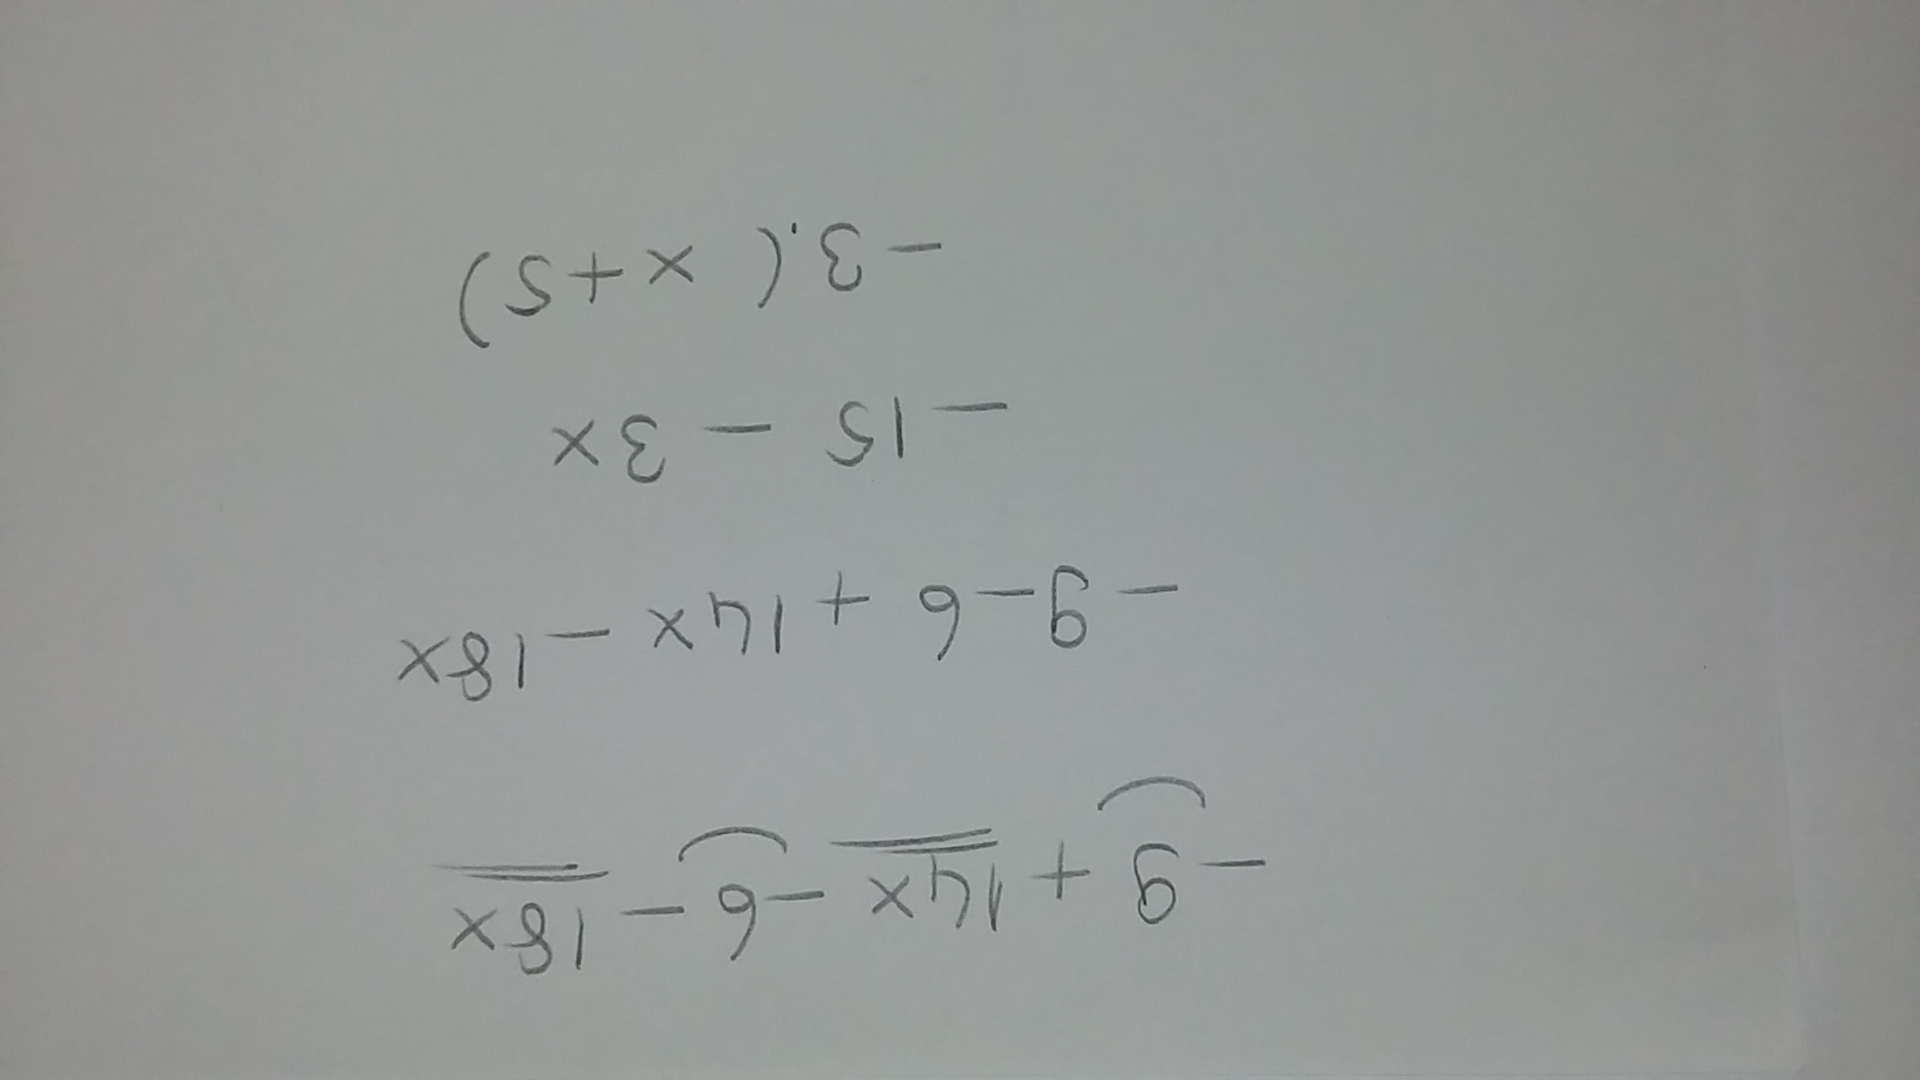 -9 + 14x - 6 - 18x
-9 - 6 + 14x - 18x
-15 - 3x
-3.( x + 5)